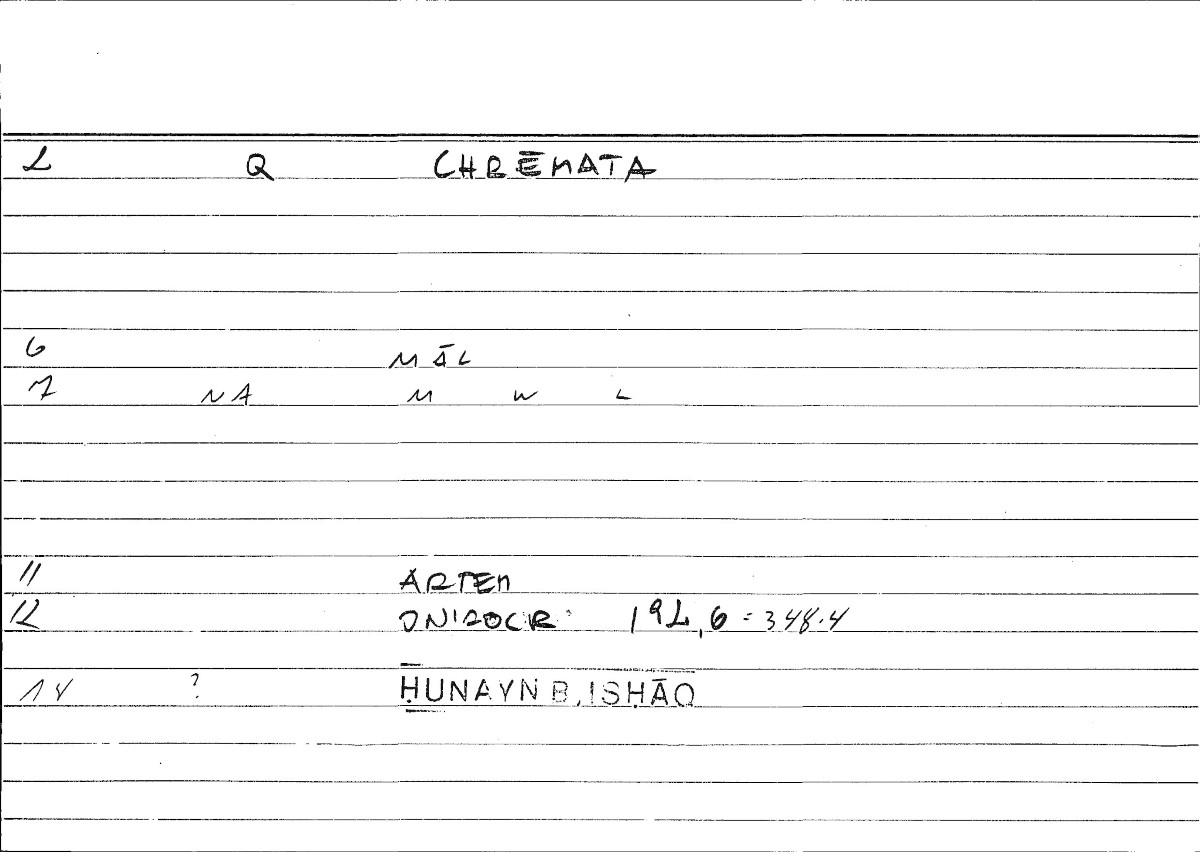 2 Q CHRĒMATA
6 MĀL
7 NA M W L
11 ARTEM
12 ONIROCR. 192,6 = 348.4
14 ? ḤUNAYN B. ISḤĀQ